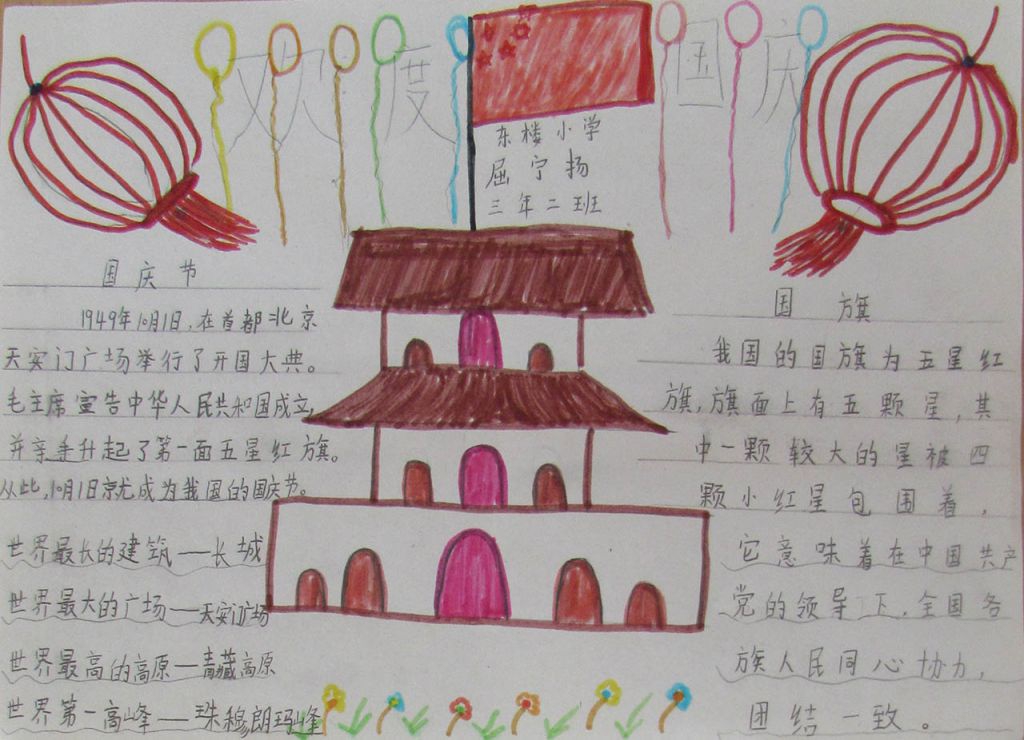 欢度国庆
东楼小学
屈宁扬
三年二班
国庆节
1949年10月1日,在首都北京
天安门广场举行了开国大典。
毛主席宣告中华人民共和国成立,
并亲手升起了第一面五星红旗。
从此,10月1日就成为我国的国庆节。
世界最长的建筑—长城
世界最大的广场—天安门广场
世界最高的高原—青藏高原
世界第一高峰—珠穆朗玛峰
国旗
我国的国旗为五星红
旗,旗面上有五颗星,其
中一颗较大的星被四
颗小红星包围着,
它意味着在中国共产
党的领导下,全国各
族人民同心协力,
团结一致。